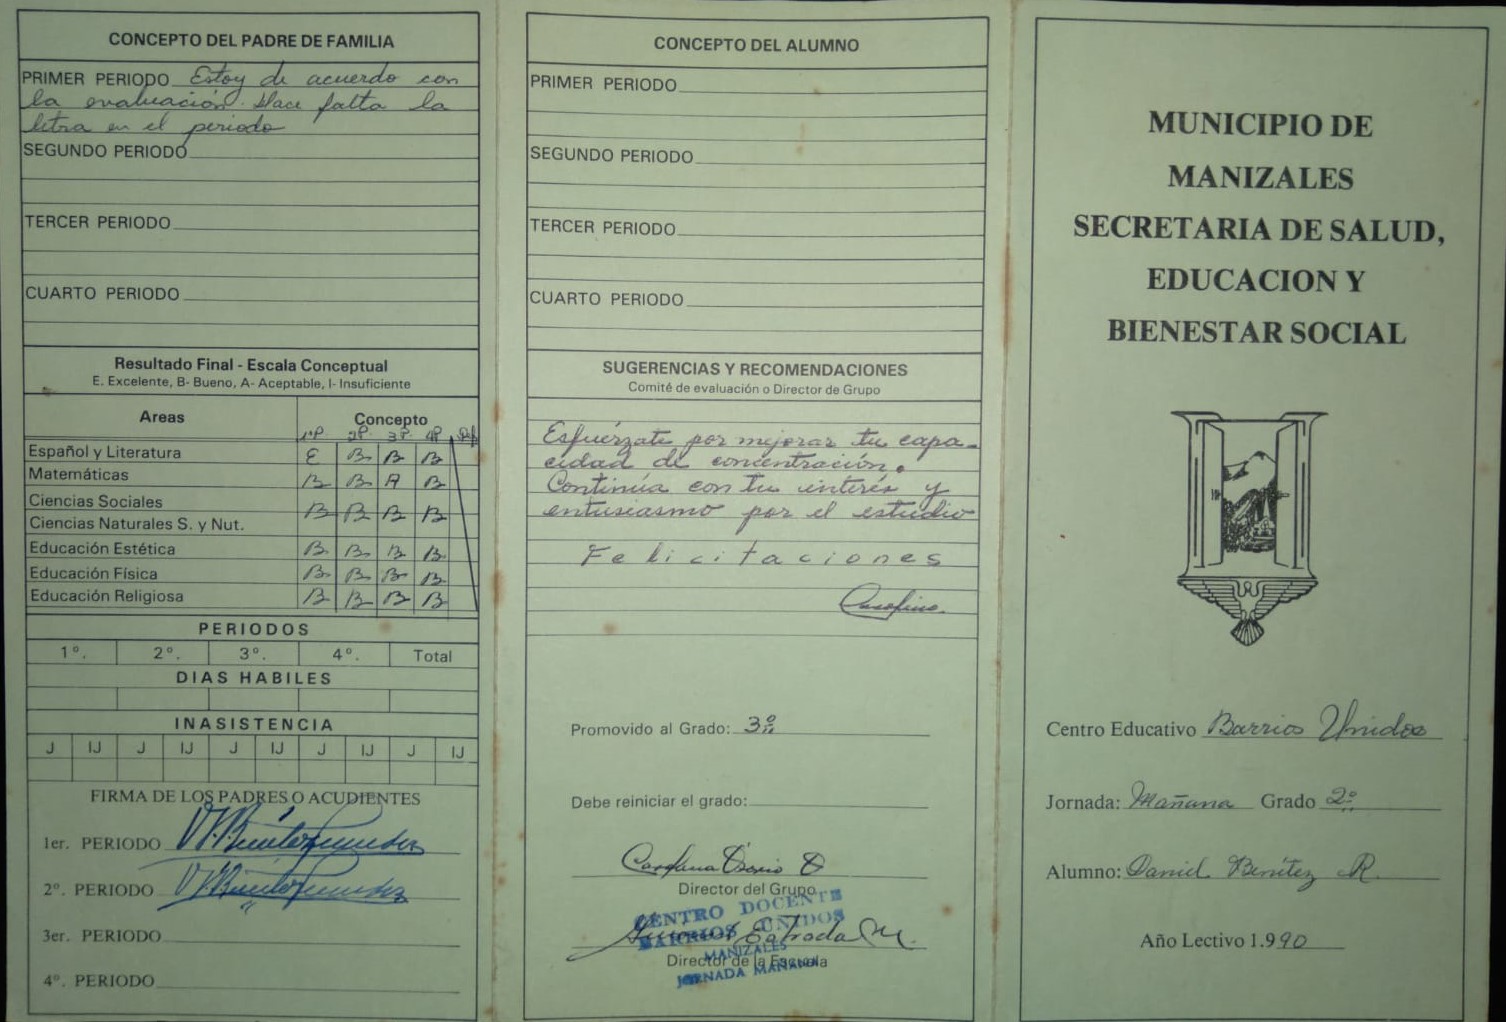 CONCEPTO DEL PADRE DE FAMILIA
PRIMER PERIODO Estoy de acuerdo con
la evaluación. Hace falta la
letra en el periodo
SEGUNDO PERIODO
TERCER PERIODO
CUARTO PERIODO
Resultado Final - Escala Conceptual
E. Excelente, B- Bueno, A- Aceptable, I- Insuficiente
Areas Concepto
1ºP. 2ºP. 3P. 4P.
Español y Literatura E B B B
Matemáticas B B A B
Ciencias Sociales
Ciencias Naturales S. y Nut. B B B B
Educación Estética B B B B
Educación Física B B B B
Educación Religiosa B B B B
PERIODOS
1º. 2º. 3º. 4º. Total
DIAS HABILES
INASISTENCIA
J IJ J IJ J IJ J IJ J IJ
FIRMA DE LOS PADRES O ACUDIENTES
1er. PERIODO
2º. PERIODO
3er. PERIODO
4º. PERIODO
CONCEPTO DEL ALUMNO
PRIMER PERIODO
SEGUNDO PERIODO
TERCER PERIODO
CUARTO PERIODO
SUGERENCIAS Y RECOMENDACIONES
Comité de evaluación o Director de Grupo
Esfuérzate por mejorar tu capa-
cidad de concentración.
Continúa con tu interés y
entusiasmo por el estudio
Felicitaciones
Promovido al Grado: 3º
Debe reiniciar el grado:
Director del Grupo
CENTRO DOCENTE
BARRIOS UNIDOS
Estrada M.
MANIZALES
Director de la Escuela
JORNADA MAÑANA
MUNICIPIO DE
MANIZALES
SECRETARIA DE SALUD,
EDUCACION Y
BIENESTAR SOCIAL
Centro Educativo Barrios Unidos
Jornada: Mañana Grado 2º
Alumno: Daniel Benítez R.
Año Lectivo 1.990